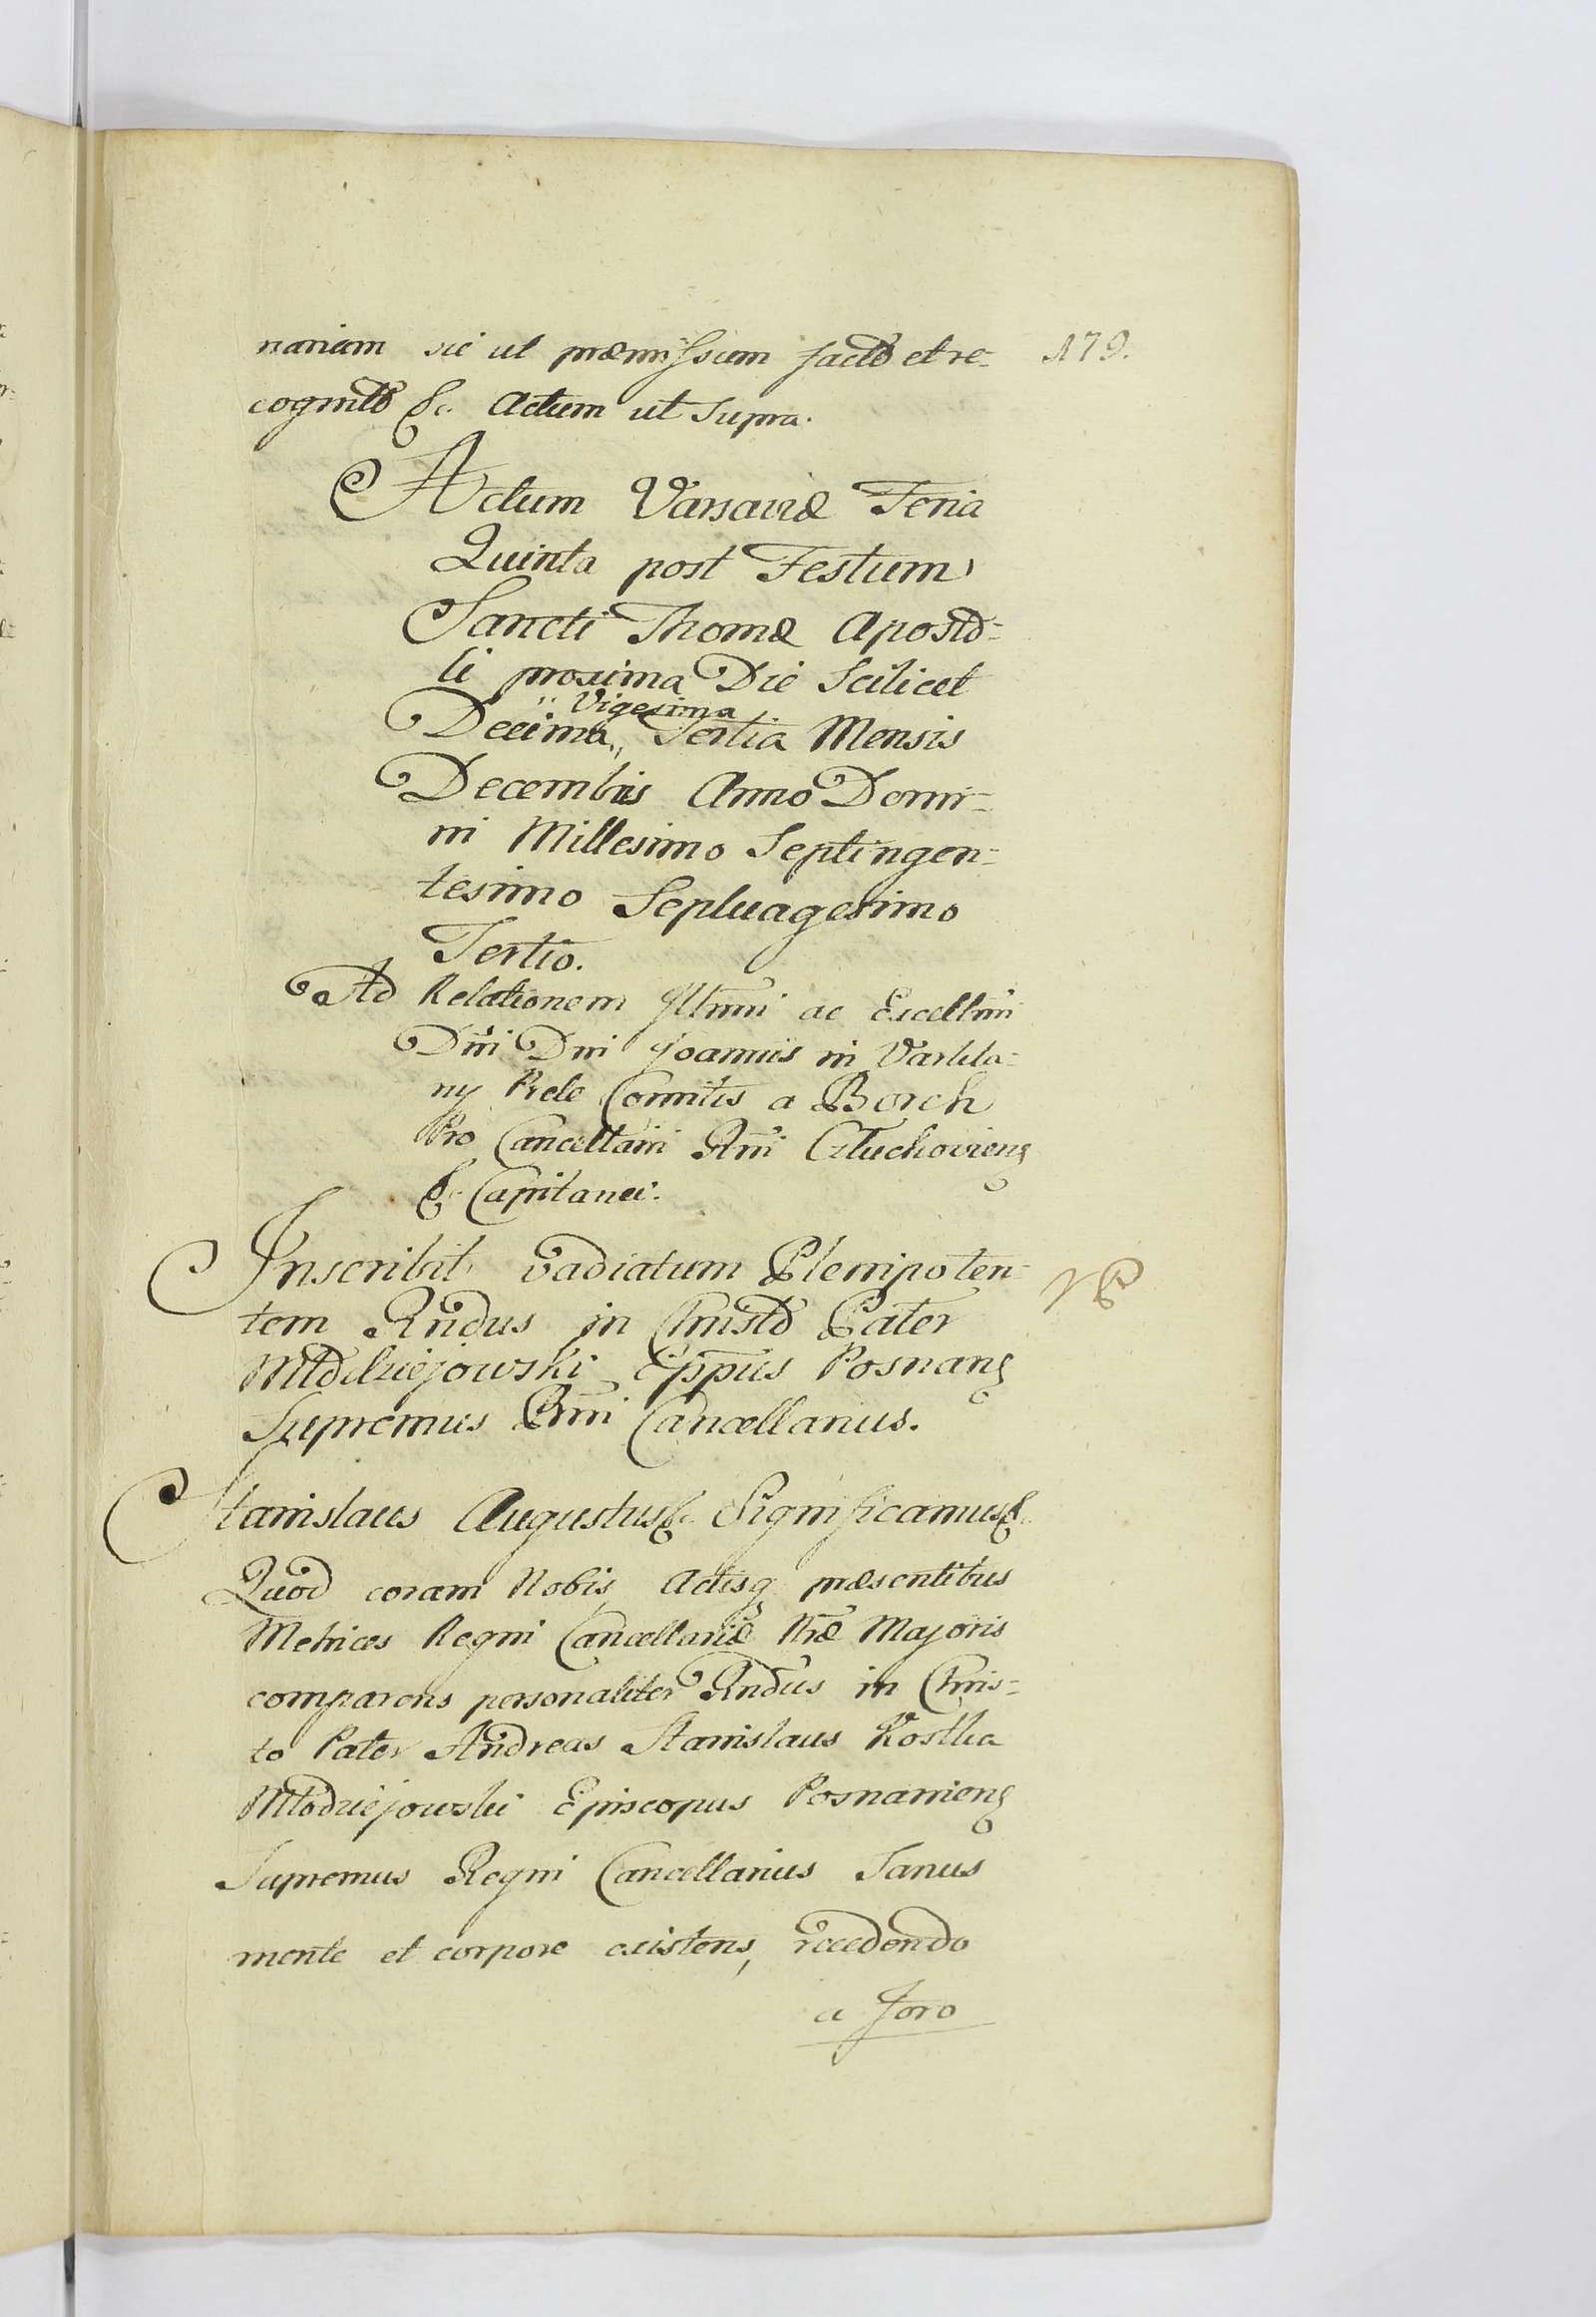 nariam sic ut præmissum facto et re-
179.
cognito &c. Actum ut Supra.
Actum Varsaviæ Feria
Quinta post Festum
Sancti Thomæ Aposto-
li proxima Die Scilicet
Vigesima
Decima Tertia Mensis
Decembris Anno Domi-
ni Millesimo Septingen-
tesimo Septuagesimo
Tertio.
Ad Relationem Illmi ac Excellmi
Dni Dni Joannis in Varkla-
ny Prele Comitis a Borch
Pro Cancellarii Rni Czluchovieng
&c. Capitanei.
Inscribit vadiatum Plenipoten-
tem Rndus in Christo Pater
Młodziejowski Eppus Posnang
Supremus Rni Cancellarius.
Stanislaus Augustus &c. Significamus &c.
Quod coram Nobis, Actisq præsentibus
Metrices Regni Cancellariæ Nræ Majoris
comparens personaliter Rndus in Chris-
to Pater Andreas Stanislaus Kostka
Młodziejowski Episcopus Posnanieng
Supremus Regni Cancellarius Sanus
mente et corpore existens, recedendo
a Foro